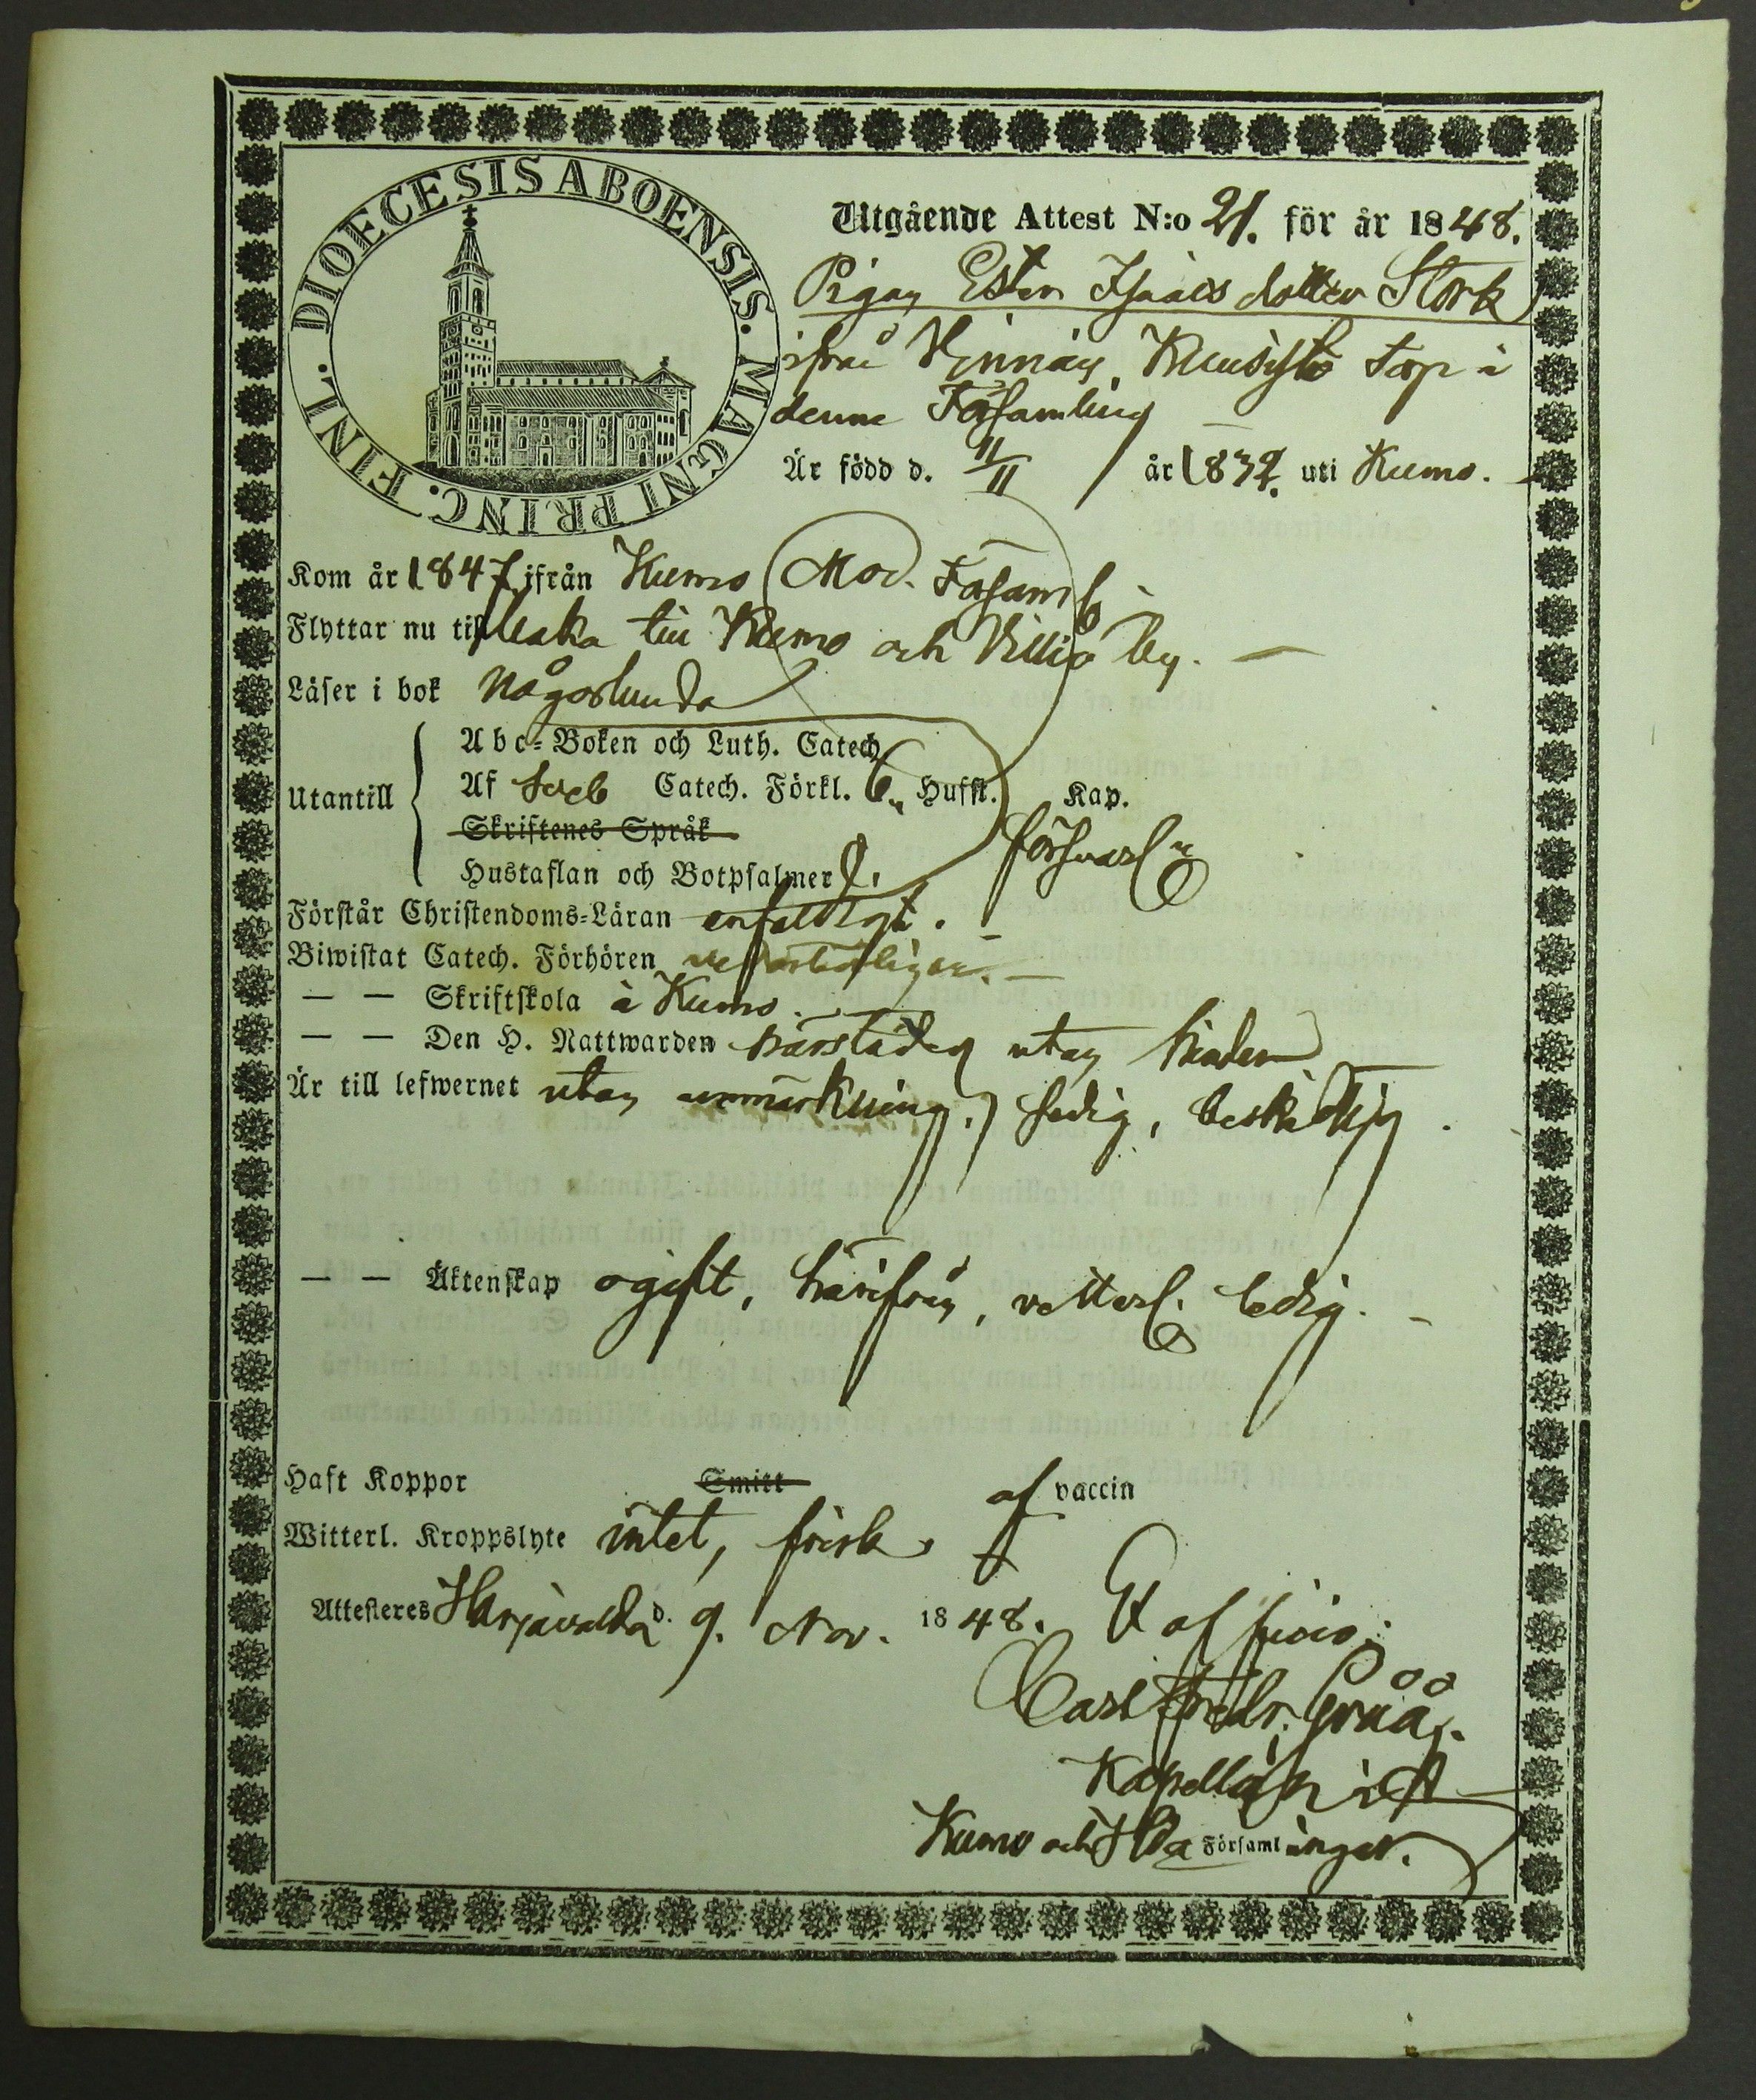 DIOECESIS ABOENSIS. MAGNI PRINC. FINL.
Utgående Attest N:o 21. för år 1848.
Pigan Ester Isaacs dotter Stork
ifrån Hinnäis Torp i
denna Församling
Är född d. 11/11 år 1832. uti Kumo.
Kom år 1847 ifrån Kumo Mod. Församl.
Flyttar nu till baka till Kumo och Villiö by.
Läser i bok Någorlunda
Utantill
Abc-Boken och Luth. Catech.
Af Sveb Catech. Förkl. 6. Hufst. Kap.
Skriftenes Språk
försvarl.
Hustaflan och Botpsalmer
Förstår Christendoms-Läran enfaldigt.
Biwistat Catech. Förhören
— — Skriftskola i Kumo.
— — Den H. Nattwarden härstädes utan hinder
Är till lefwernet utan anmärkning, sedig, beskedlig.
— — Äktenskap ogift, härifrån, vetterl. ledig.
Haft Koppor Smitt af vaccin
Witterl. Kroppslyte intet, frisk
Attesteres Harjavalda d. 9. Nov. 1848. Ex officio.
Carl Fredr. Gråå.
Kapellan i
Kumo och Hlda Församlingar.